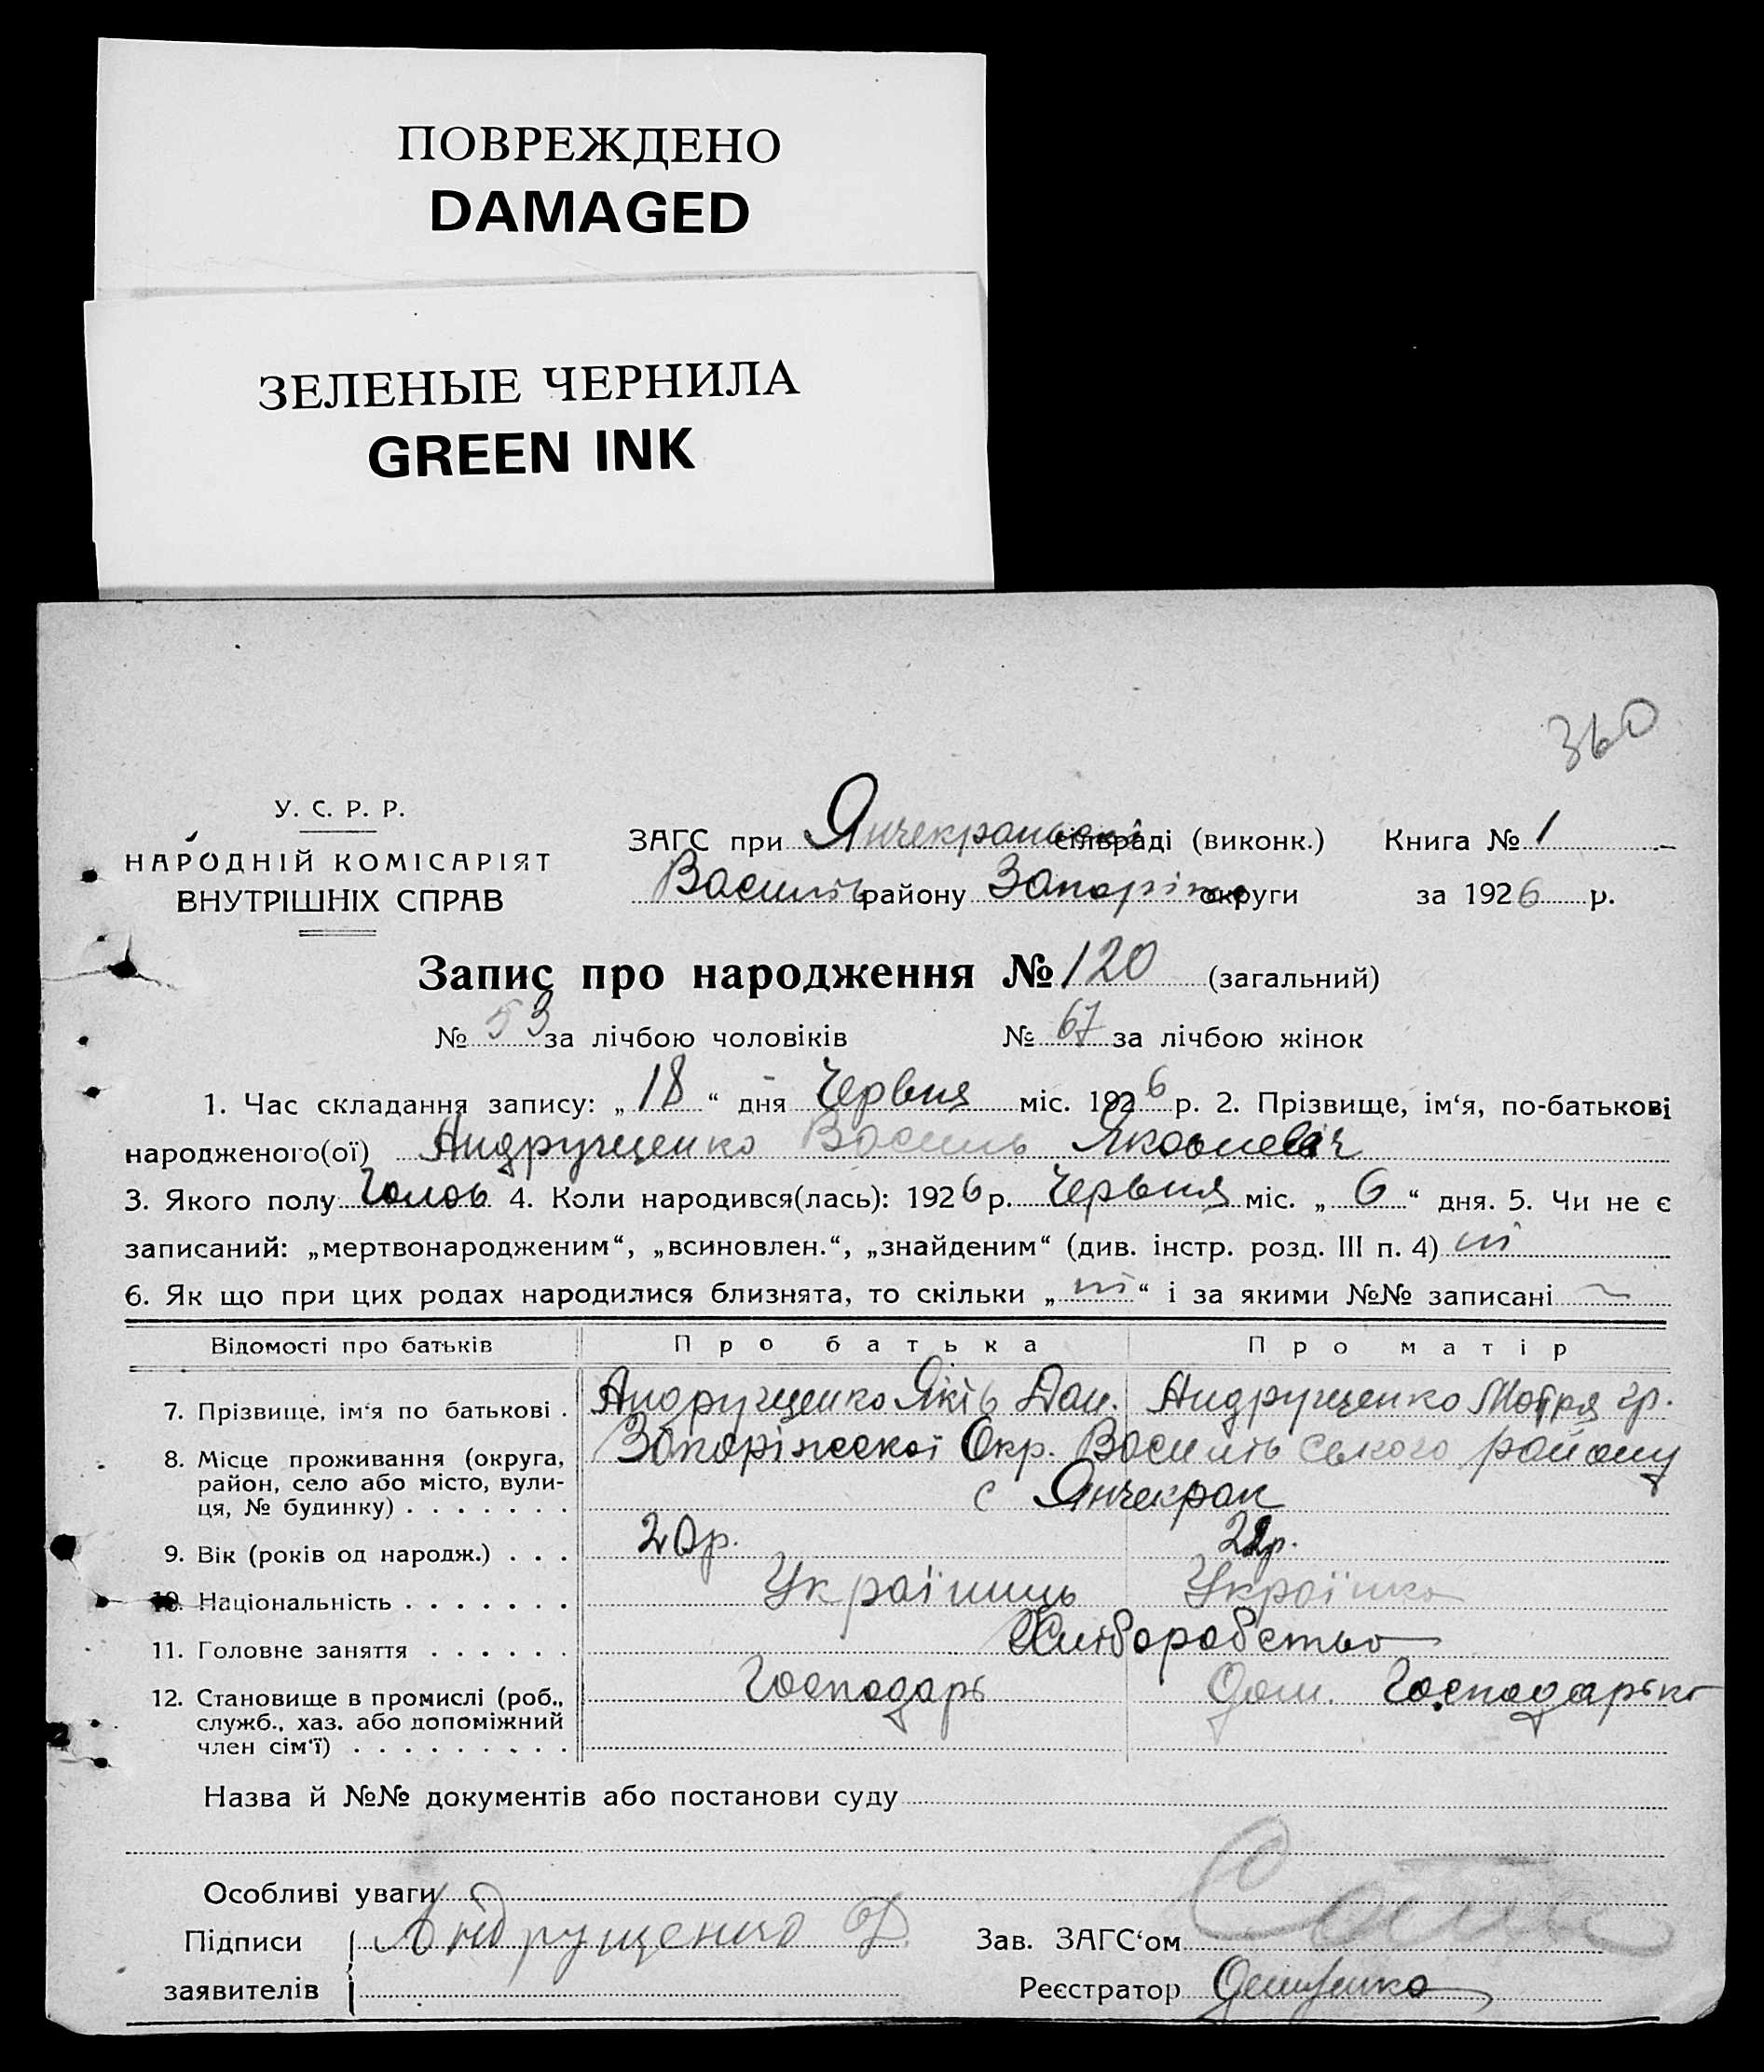 ПОВРЕЖДЕНО
DAMAGED
ЗЕЛЕНЫЕ ЧЕРНИЛА
GREEN INK
360
У. С. Р. Р.
НАРОДНІЙ КОМІСАРІЯТ
ВНУТРІШНІХ СПРАВ
ЗАГС при Янчекракській сільраді (виконк.) Книга № 1
Василів району Запоріж округи за 1926 р.
Запис про народження № 120 (загальний)
№ 53 за лічбою чоловіків № 67 за лічбою жінок
1. Час складання запису: „18“ дня Червня міс. 1926 р. 2. Прізвище, ім‘я, по-батькові
народженого(ої) Андрущенко Василь Яковлевіч
3. Якого полу Чолов 4. Коли народився(лась): 1926 р. Червня міс. „6“ дня. 5. Чи не є
записаний: „мертвонародженим“, „всиновлен.“, „знайденим“ (див. інстр. розд. III п. 4) ні
6. Як що при цих родах народилися близнята, то скільки „ні“ і за якими №№ записані ~
Відомості про батьків Про батька Про матір
7. Прізвище, ім‘я по батькові . Андрущенко Якiв Дан. Андрущенко Мотря гр.
8. Місце проживання (округа, район, село або місто, вулиця, № будинку) . . . . . . . Запоріжської Окр. Василівського району
с Янчекрак
9. Вік (років од народж.) . . . 20р. 22р.
10. Національність . . . . . . . Україниць Українка
11. Головне заняття . . . . . . Хлiборобство
12. Становище в промислі (роб., служб., хаз. або допоміжний член сім‘ї) . . . . . . . . . Господарь Дом. Господарька
Назва й №№ документів або постанови суду
Особливі уваги
Підписи заявителів Андрущенко
Зав. ЗАГС‘ом
Реєстратор